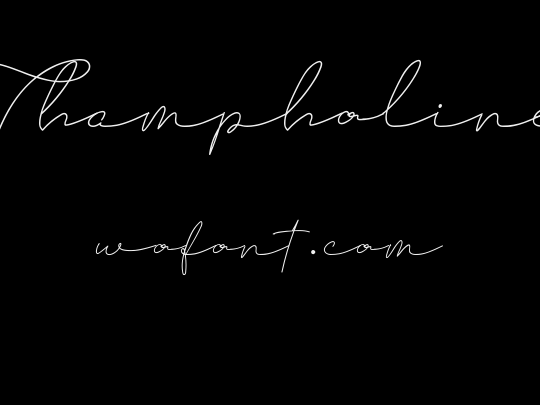 Thampholine
wofont.com